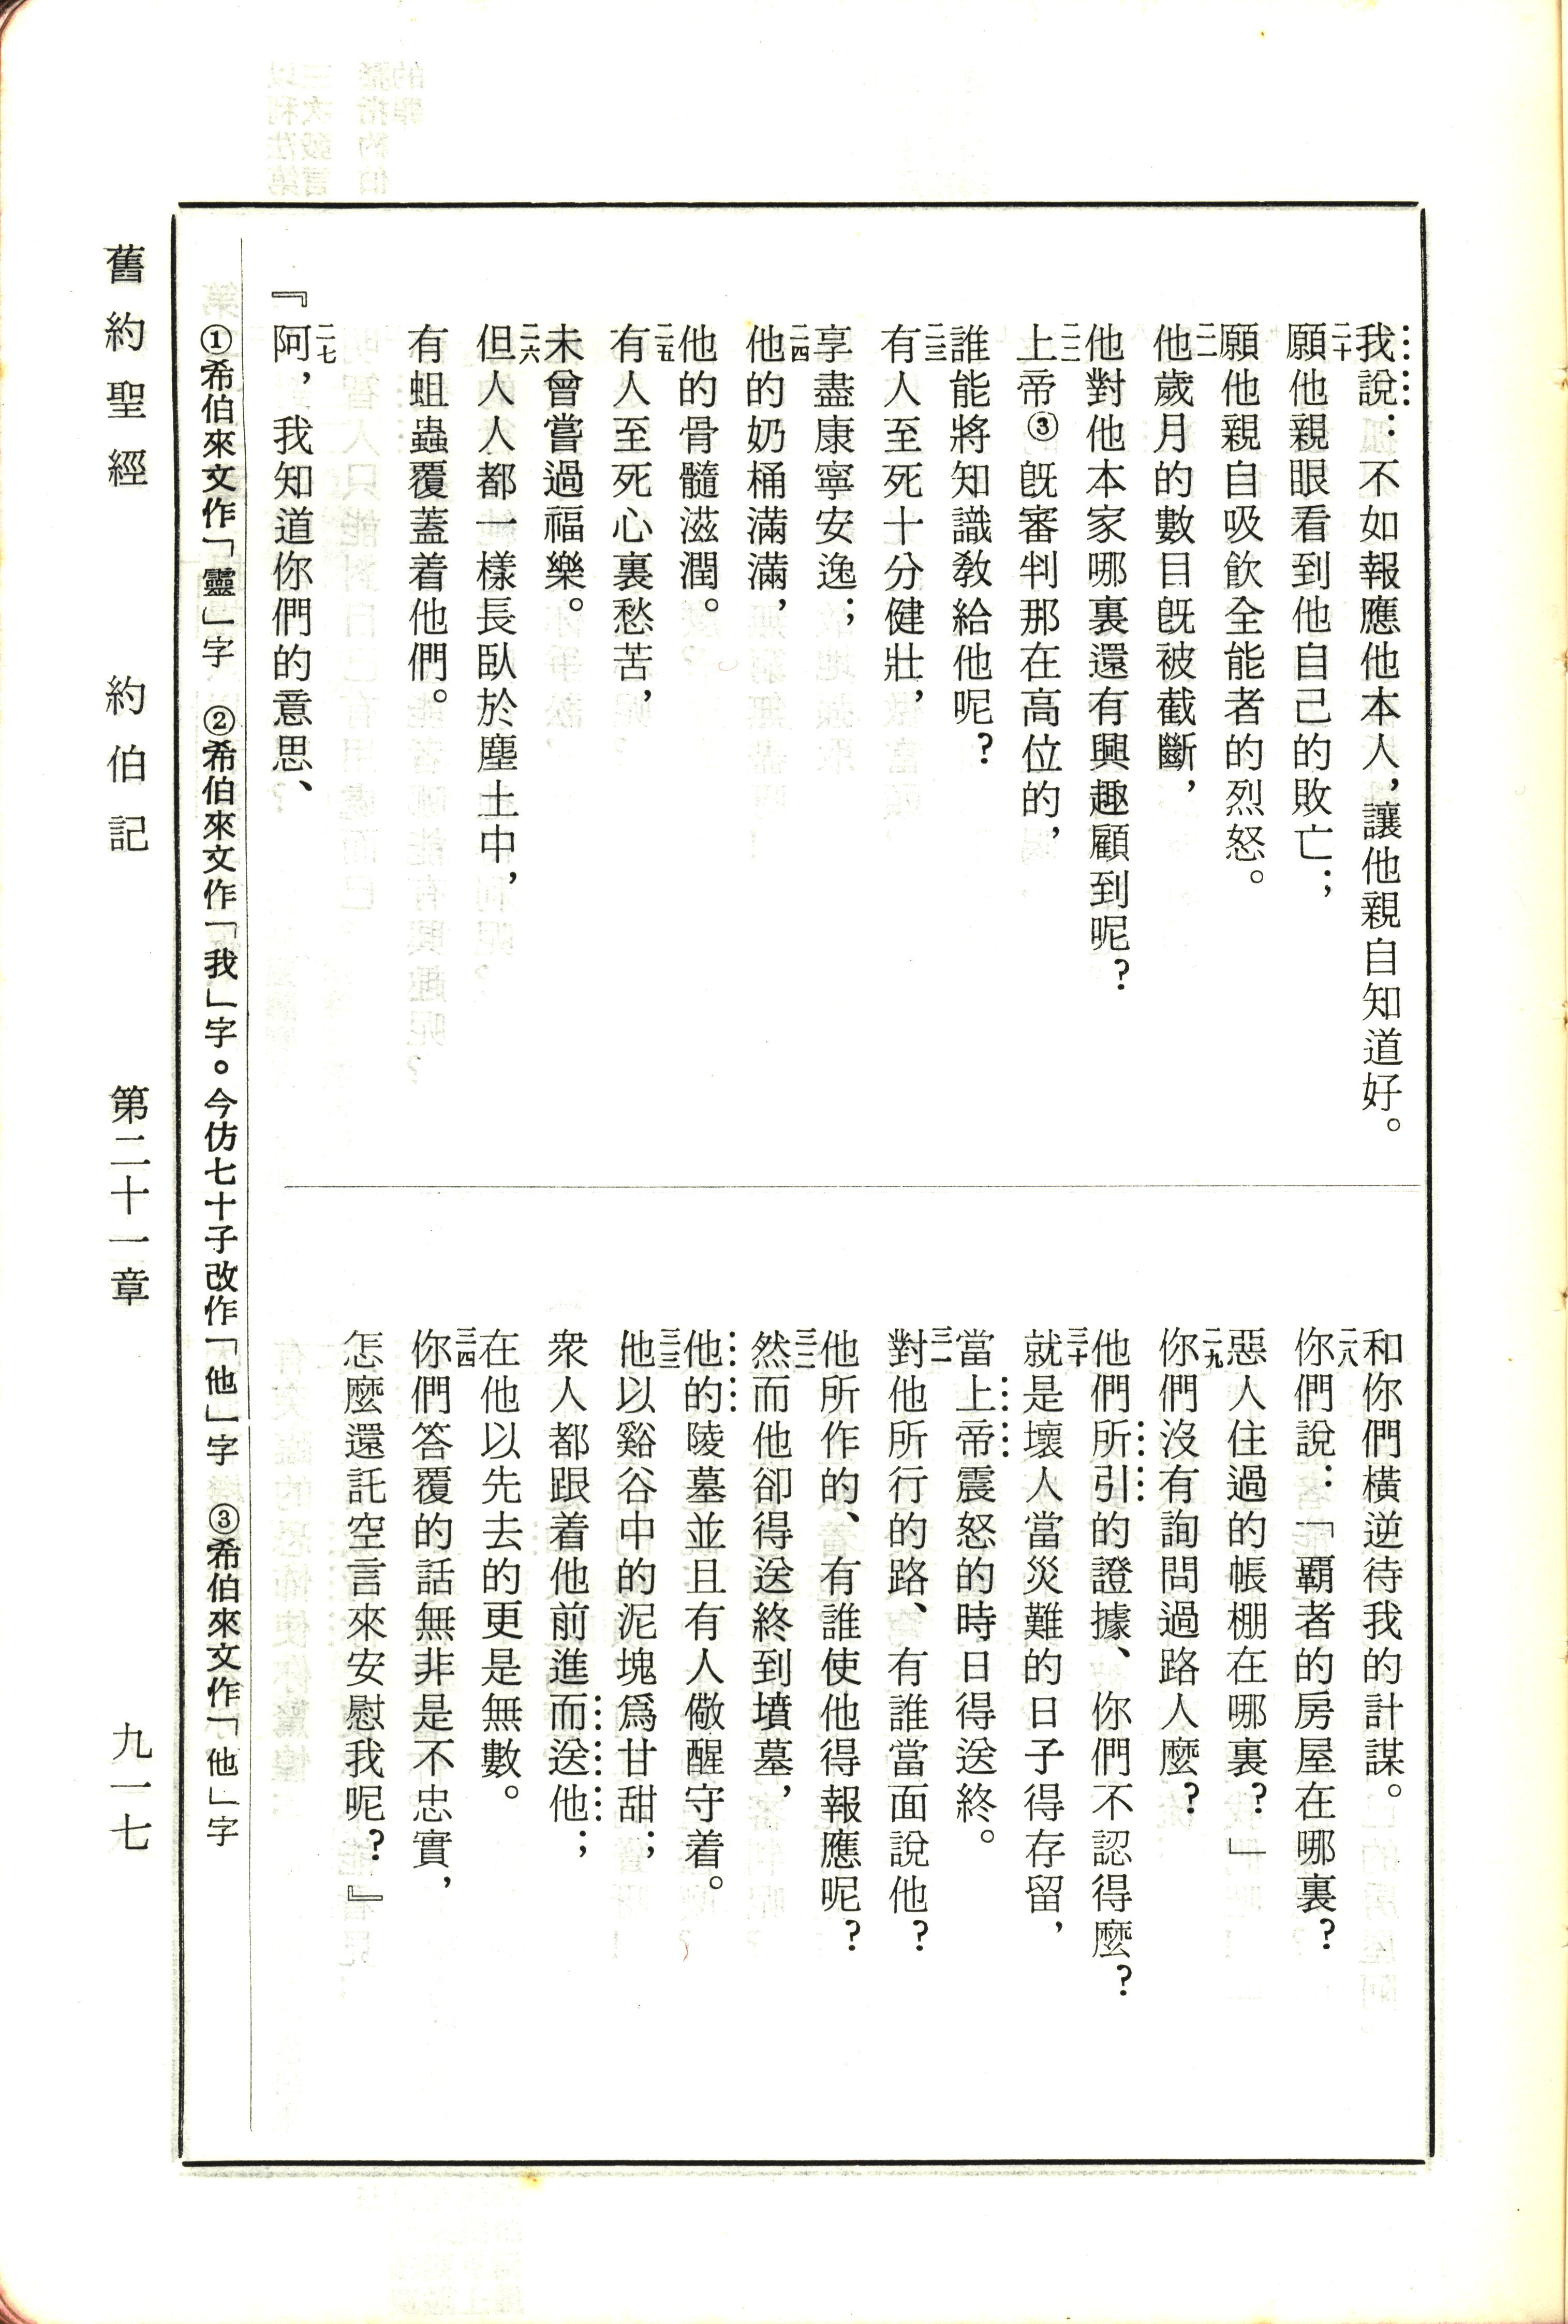 我說：不如報應他本人，讓他親自知道好。
二十願他親眼看到他自己的敗亡；
願他親自吸飲全能者的烈怒。
二一他歲月的數目旣被截斷，
他對他本家哪裏還有興趣顧到呢？
二二上帝③旣審判那在高位的，
誰能將知識教給他呢？
二三有人至死十分健壯，
享盡康寧安逸；
二四他的奶桶滿滿，
他的骨髓滋潤。
二五有人至死心裏愁苦，
未曾嘗過福樂。
二六但人人都一樣長臥於塵土中，
有蛆蟲覆蓋着他們。
二七『阿，我知道你們的意思、
和你們橫逆待我的計謀。
二八你們說：「霸者的房屋在哪裏？
惡人住過的帳棚在哪裏？」
二九你們沒有詢問過路人麼？
他們所引的證據、你們不認得麼？
三十就是壞人當災難的日子得存留，
當上帝震怒的時日得送終。
三一對他所行的路、有誰當面說他？
他所作的、有誰使他得報應呢？
三二然而他卻得送終到墳墓，
他的陵墓並且有人儆醒守着。
三三他以谿谷中的泥塊爲甘甜；
衆人都跟着他前進而送他；
在他以先去的更是無數。
三四你們答覆的話無非是不忠實，
怎麼還託空言來安慰我呢？』
①希伯來文作「靈」字　②希伯來文作「我」字。今仿七十子改作「他」字　③希伯來文作「他」字
舊約聖經　約伯記　第二十一章　九一七